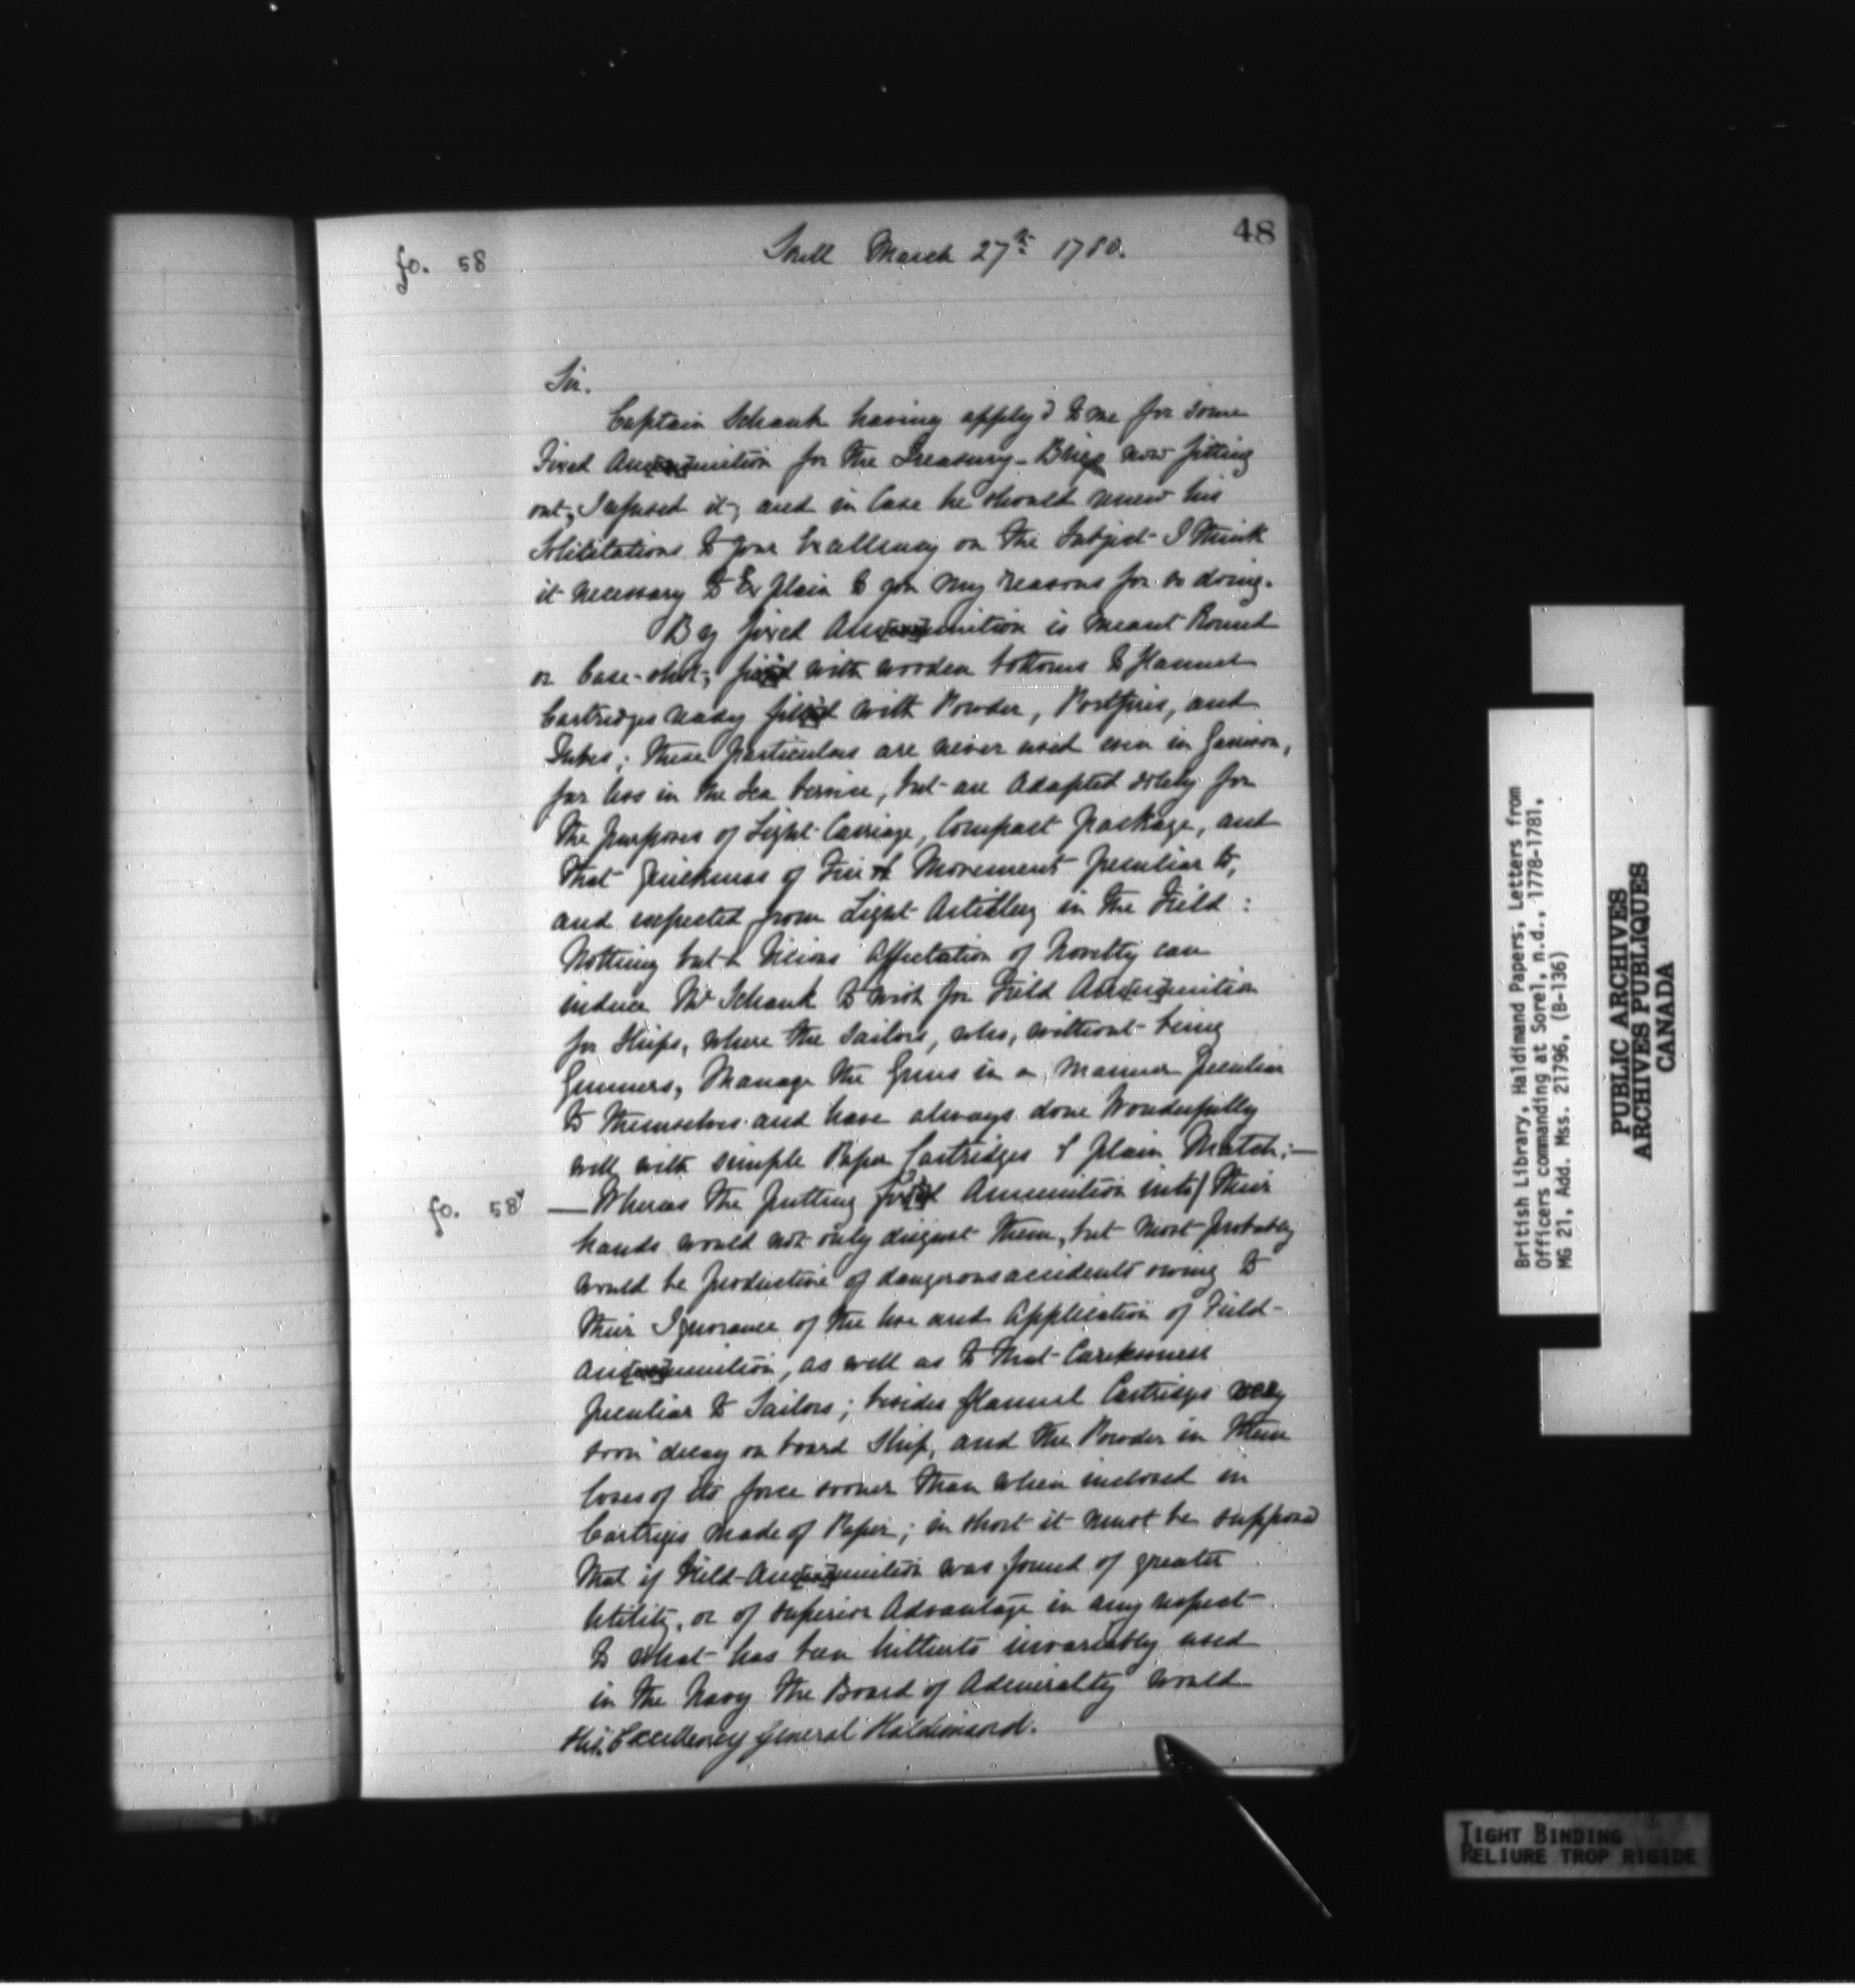 48
fo. 58
Sorell March 27th 1780.
Sir.
Captain Schank having apply'd to me for some
Fixed Ammunition for the Treasury-Brigs now fitting
out, I refused it, and in Case he should renew his
Solicitations to your Excellency on the Subject I think
it necessary to Explain to you my reasons for so doing.
By fixed Ammunition is meant Round
or Case-shot, fixed with wooden bottoms to flannel
Cartridges ready filled with Powder, Portfires, and
Tubes; these particulars are never used even in Garrison,
far less in the Sea Service, but are Adapted solely for
the purposes of Light-Carriage, Compact package, and
that quickness of Fire & Movement peculiar to,
and expected from Light Artillery in the Field:
Nothing but a Vicious Affectation of Novelty can
induce Mr Schank to wish for Field Ammunition
for Ships, where the Sailors, who, without being
Gunners, Manage the Guns in a manner peculiar
to themselves and have always done Wonderfully
well with simple Paper Cartridges & plain Match:—
fo. 58v
—Whereas the putting fixed Ammunition into their
hands would not only disgust them, but most probably
would be productive of dangerous accidents owing to
their Ignorance of the Use and Application of Field-
Ammunition, as well as to that Carelessness
peculiar to Sailors; besides flannel Cartridges very
soon decay on board Ship, and the Powder in them
loses of its force sooner than when inclosed in
Cartriges made of Paper; in short it must be supposed
that if Field-Ammunition was found of greater
Utility, or of superior Advantage in any respect
to what has been hitherto invariably used
in the Navy the Board of Admiralty would
His Excellency General Haldimand.
British Library, Haldimand Papers, Letters from
Officers commanding at Sorel, n.d., 1778-1781,
MG 21, Add. Mss. 21796, (B-136)
PUBLIC ARCHIVES
ARCHIVES PUBLIQUES
CANADA
TIGHT BINDING
RELIURE TROP RIGIDE